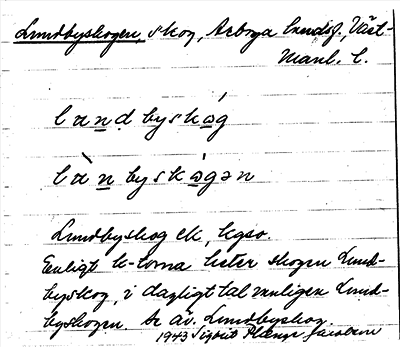 Lundbyskogen, skog, Arboga landsf., Väst-
manl. l.
lundbyskǫg
lùn byskǫgən
Lundbyskog ek, kgso.
Enligt k-torna heter skogen Lund-
byskog, i dagligt tal vanligen Lund-
byskogen. Se äv. Lundbyskog.
1943 Sigurd